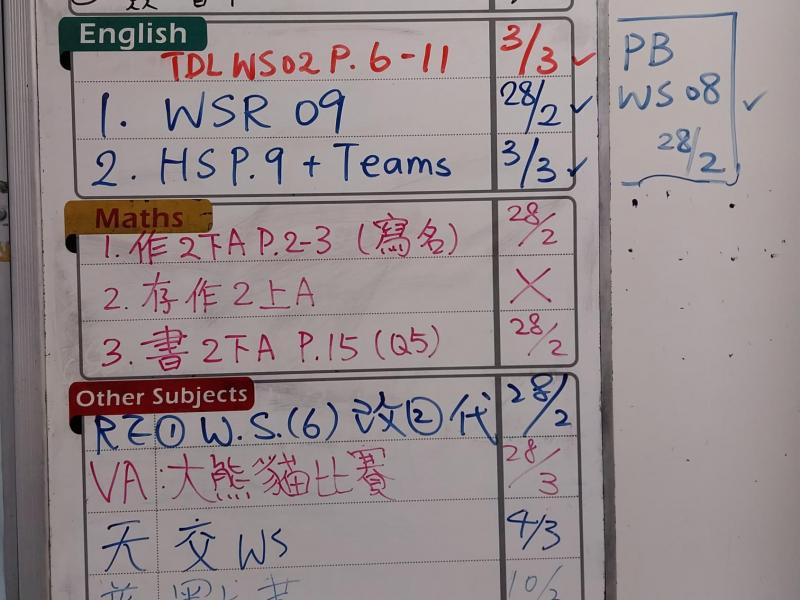 English
TDL WS02 P. 6-11 3/3 ✓
1. WSR 09 28/2 ✓
2. HS P.9 + Teams 3/3 ✓
PB
WS 08 ✓
28/2
Maths
1. 作2下A P.2-3 (寫名) 28/2
2. 存作2上A X
3. 書2下A P.15 (Q5) 28/2
Other Subjects
RE ① W.S.(6) 改② 代 28/2
VA:大熊貓比賽 28/3
天 交 WS 4/3
10/2